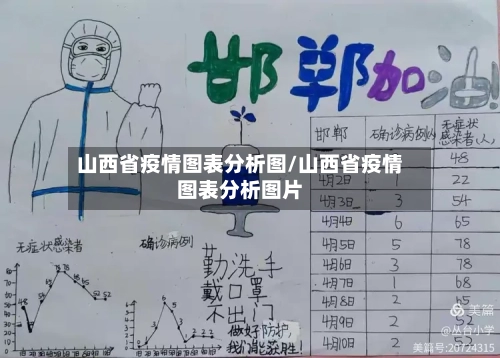 邯郸加油
山西省疫情图表分析图/山西省疫情
图表分析图片
邯郸 确诊病例(人) 无症状感染者(人)
48
4月2日 1 22
4月3日 3 54
4月4日 6 65
4月5日 5 78
4月6日 3 78
4月7日 1 68
4月8日 2
4月9日 2
4月10日 2
无症状感染者
确诊病例
勤洗手
戴口罩
不出门
做好防护,
我们能获胜!
美篇
@丛台小学
美篇号:20724315